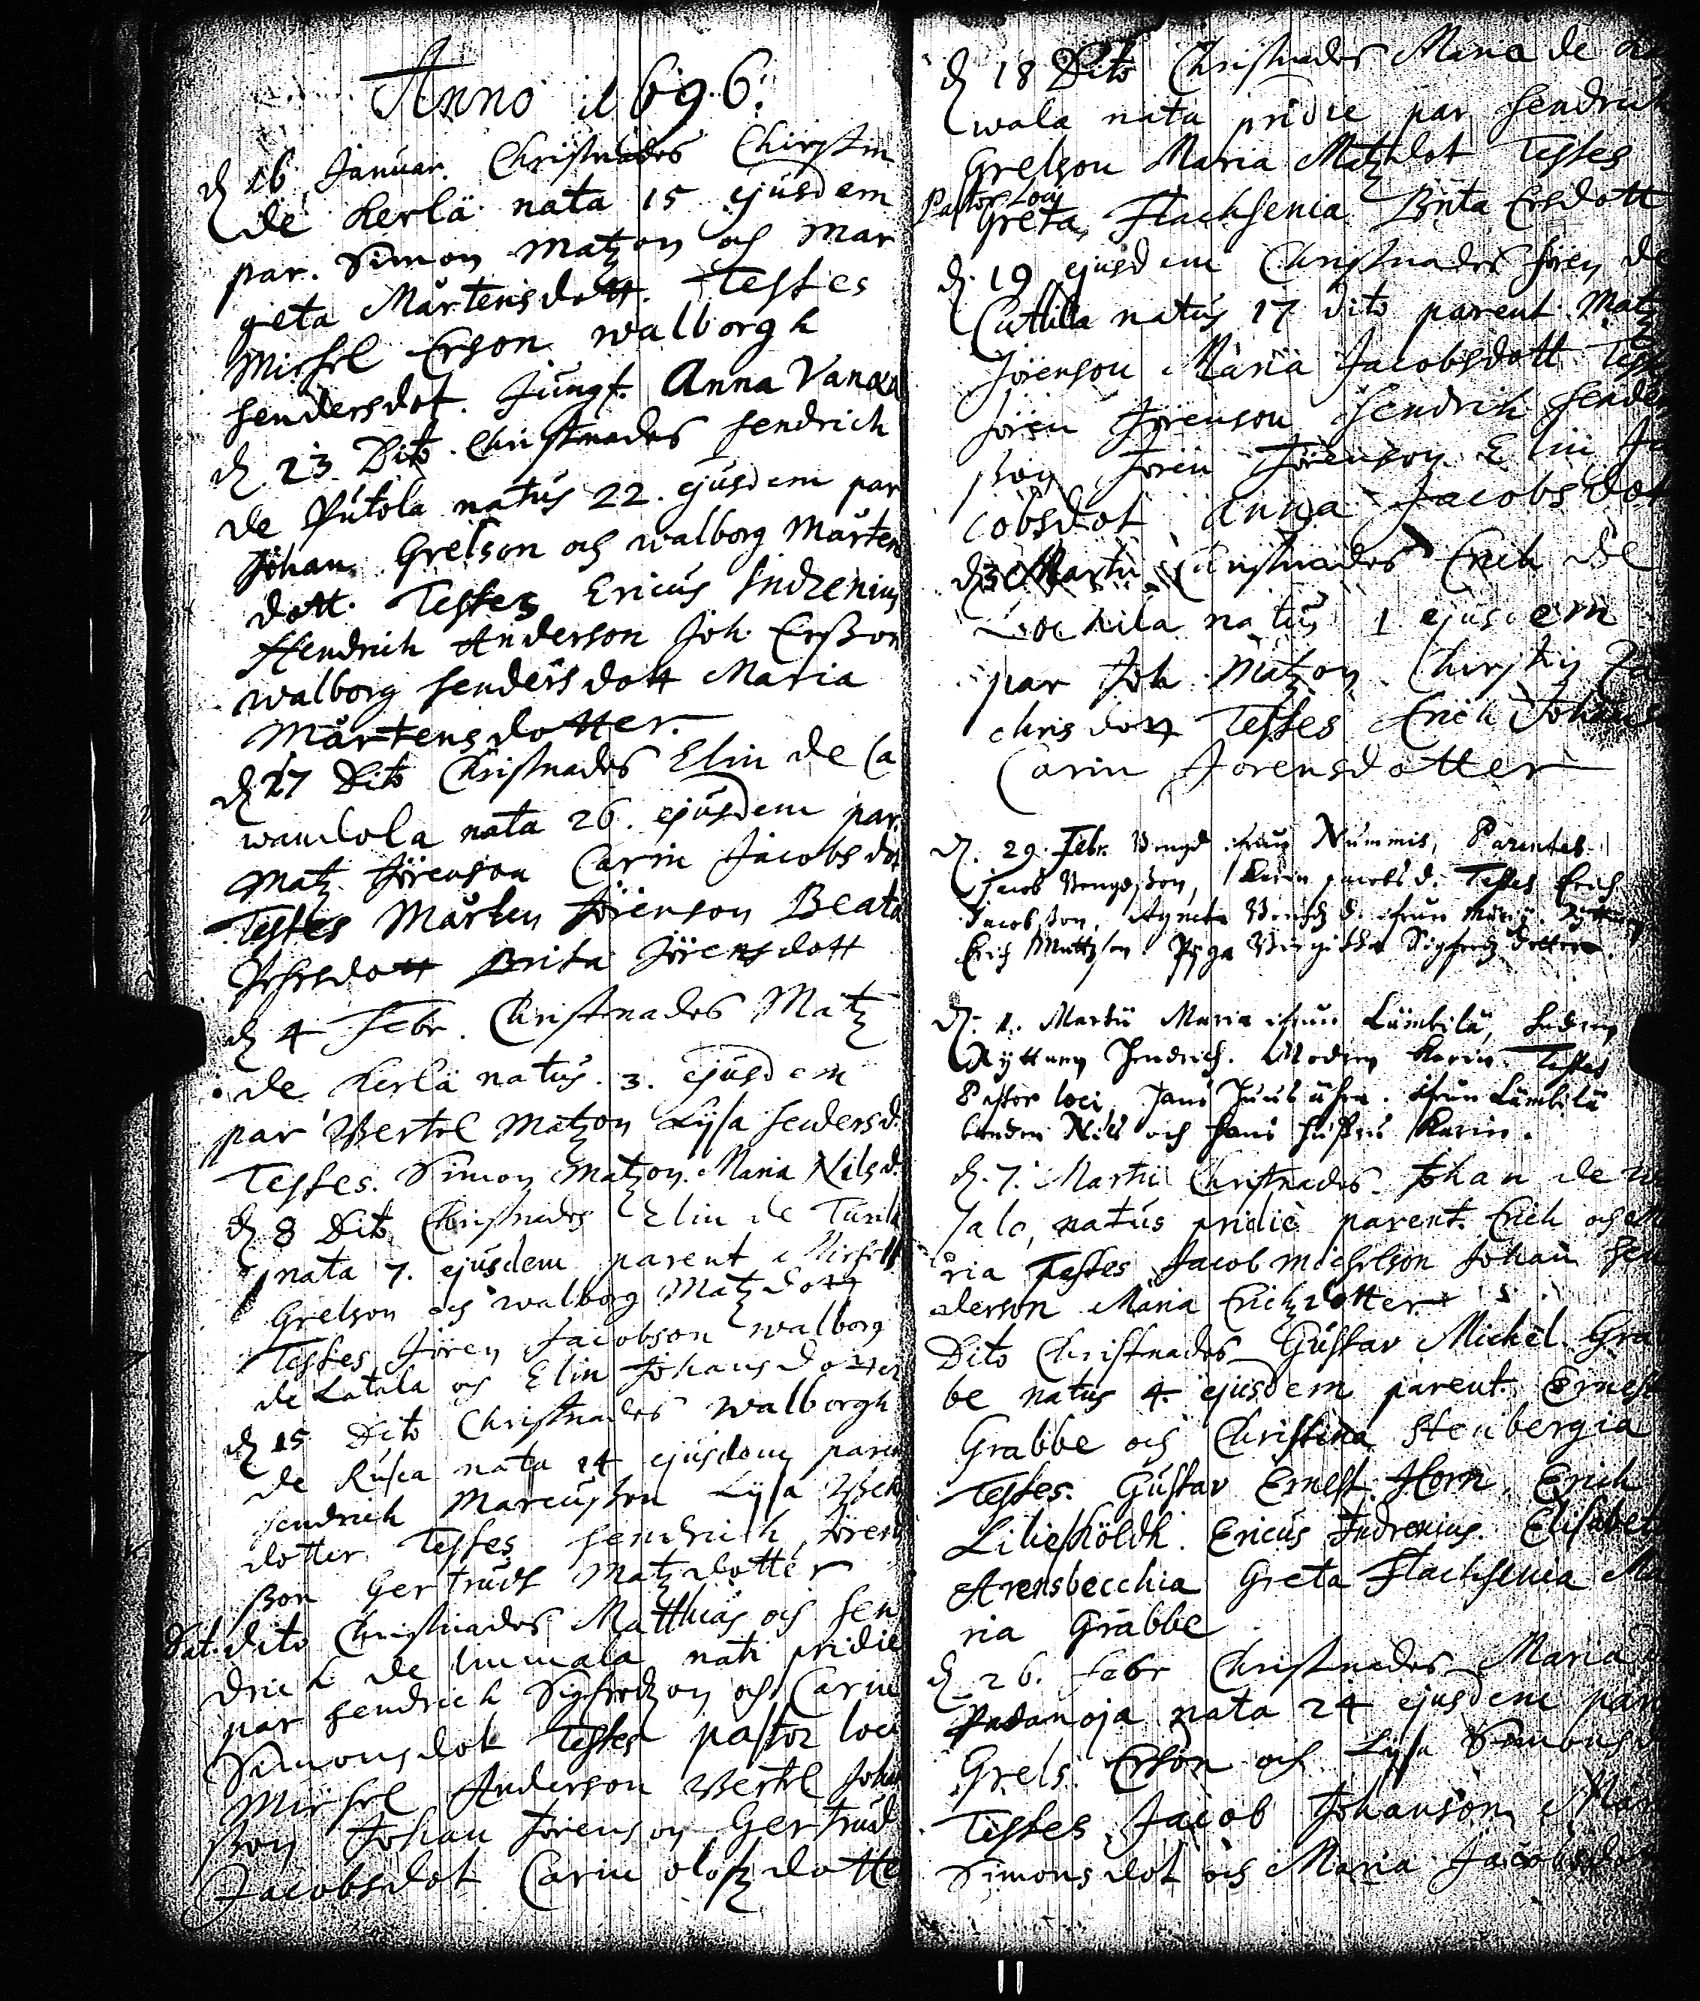 Anno 1696.
d 16 Januar. Christnades Chirstin
de Kerlä nata 15 ejusdem
par. Simon Matzon och Mar
geta Mårtensdott. Testes
Michel Erson walborgh
hendersdot. Jungf. Anna Vanæa
d 23 Dito Christnades hendrich
de Putola natus 22. ejusdem par
Johan Grelson och walborg Mårtens
dott. Testes Ericus Indrenius
Hendrich Anderson Joh. Ersson
walborg hendersdott Maria
Mårtensdotter.
d 27 Dito Christnades Elin de Ca
wandola nata 26. ejusdem par.
Matz Jörenson Carin Jacobsdot
Testes Mårten Jörenson Beata
Brita Jörensdott
d 4 Febr. Christnades Matz
de Kerlä natus. 3. ejusdem
par Bertel Matzon Lysa hendersd.
Testes. Simon Matzon. Maria Nilsd.
d 8 Dito Christnades Elin de
nata 7. ejusdem parent Michell
Grelson och walborg Matzdott
Testes Jören Jacobson walborg
de Latala och Elin Johansdotter
d 15 Dito Christnades walborgh
de Rusca nata 14 ejusdem paren
hendrich Marcusson Lysa
dotter Testes hendrich Jören
sson Gertrudh Matzdotter
Dat. dito Christnades Matthias och hen
drich de Immala nati pridie
par hendrich Sigfredzon och Carin
Simonsdot Testes pastor loci
Michel Anderson Bertel Johan
sson Johan Jörenson Gertrud
Jacobsdot Carin olofzdotte
d 18 Dito Christnades Maria de
wala nata pridie par hendrich
Grelson Maria Matzdot Testes
Pastor Loci
Greta Flachsenia Brita Ersdott
d. 19 ejusdem Christnades Jören de
Cuttila natus 17 dito parent. Matz
Jörenson Maria Jacobsdott Test
Jören Jörenson hendrich hender
sson Jören Jörenson Elin Ja
cobsdot Anna Jacobsdott
d 3 Martii Christnades Erich de
natus 1 ejusdem
par Joh Matzon Chirstin
chrisdott Testes Erich Johans
Carin Jorensdotter
d. 29. Febr. Bengd ifrån Nummis, Parentes
Jacob Bengdsson, Karin Jacobs d. Testes Erich
Jacobsson, Agneta d. ifrån
Erich Mattzson Pyga Birgitta Sigfredz dotter.
d. 1. Martii Maria ifrån Lämbilä, fadren
Ryttaren Hendrich. Modren Karin. Testes
Pastor loci Hans ifrån Lämbilä
bonden Nils och hans hustru Karin.
d. 7. Martii Christnades Johan de
jalo, natus pridie parent. Erich och Ma
ria Testes Jacob Michelson Johan hen
derson Maria Erichzdotter
Dito Christnades Gustav Michel Gra
be natus 4. ejusdem parent. Ernest
Grabbe och Christina Stenbergia
Testes. Gustav Ernest Horn, Erich
Lilieshöldh. Ericus Indrenius. Elisabeth
Arensbecchia Greta Flachsenia Ma
ria Grabbe
d 26. Febr Christnades Maria de
Padanoja nata 24 ejusdem par
Grels Erson och Lysa Simonsd
Testes Jacob Johanson
Simonsdot och Maria Jacobsdott
11